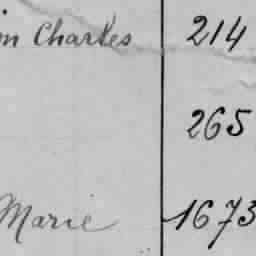 in Charles 214
265
Marie 1673